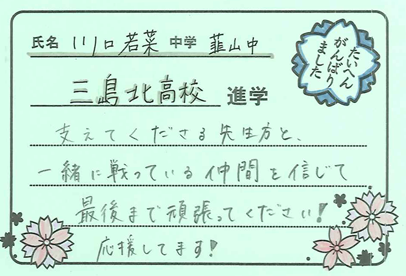 氏名 川口若菜 中学 韮山中
三島北高校 進学
支えてくださる先生方と、
一緒に戦っている仲間を信じて
最後まで頑張ってください!
応援してます!
たいへん
がんばり
ました